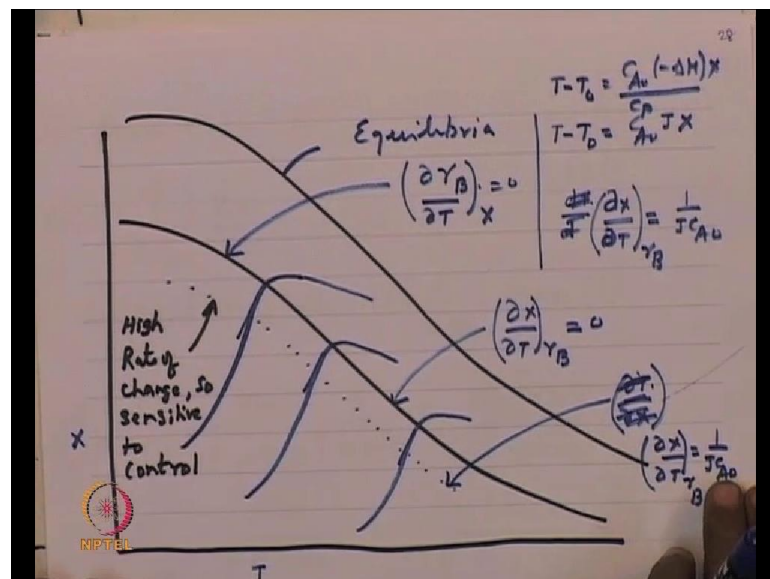 28
T-T₀ = C_A₀ (-ΔH) X / C_P
T-T₀ = C_A₀ J X
(∂X/∂T)_r_B = 1/JC_A₀
Equilibria
(∂r_B/∂T)_X = 0
(∂X/∂T)_r_B = 0
(∂X/∂T)_r_B = 1/JC_A₀
High
Rate of
change, so
sensitive
to
control
X
T
NPTEL